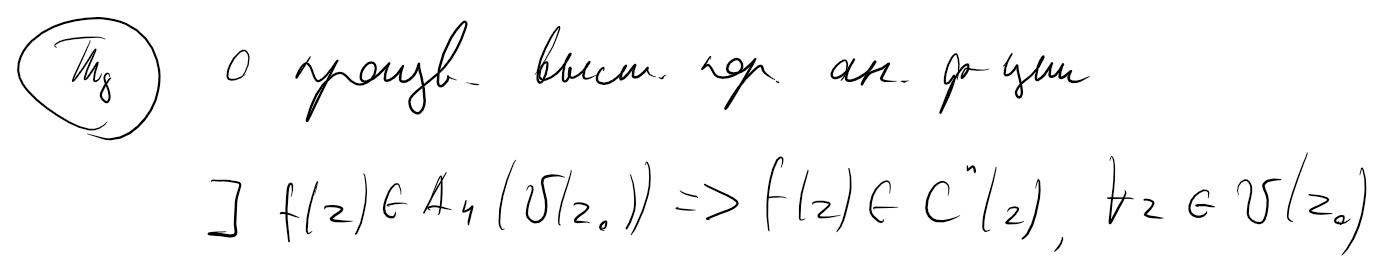 Th₈ О произв. высш. пор. ан. ф-ции
] f(z) ∈ An (U(z₀)) => f(z) ∈ Cⁿ(z), ∀z ∈ U(z₀)